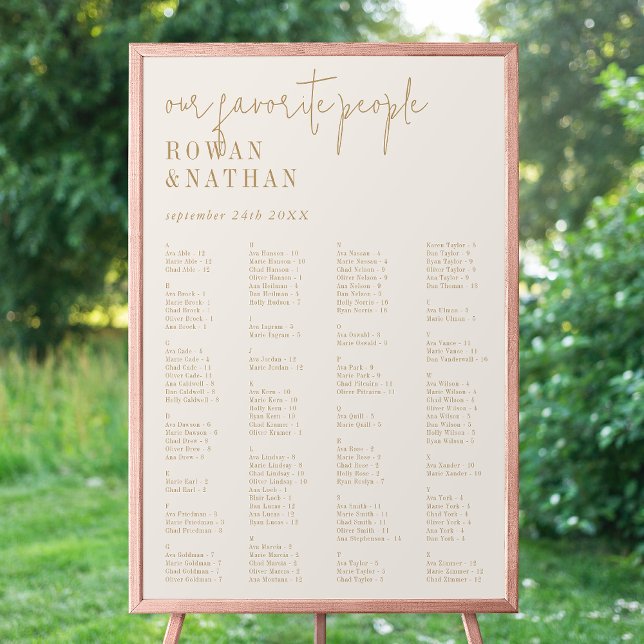 our favorite people
ROWAN
&NATHAN
september 24th 20XX
A
Ava Able - 12
Marie Able - 12
Chad Able - 12
B
Ava Brock - 1
Marie Brock - 1
Chad Brock - 1
Oliver Brock - 1
Ana Brock - 1
G
Ava Cade - 4
Marie Cade - 4
Chad Cade - 11
Oliver Cade - 11
Ana Caldwell - 8
Dan Caldwell - 8
Holly Caldwell - 8
D
Ava Dawson - 6
Marie Dawson - 6
Chad Drew - 8
Oliver Drew - 8
Ana Drew - 8
E
Ava Earl - 2
Marie Earl - 2
Chad Earl - 2
F
Ava Friedman - 3
Marie Friedman - 3
Chad Friedman - 3
G
Ava Goldman - 7
Marie Goldman - 7
Chad Goldman - 7
Oliver Goldman - 7
H
Ava Hanson - 10
Marie Hanson - 10
Chad Hanson - 1
Oliver Hanson - 1
Ana Heilman - 4
Dan Heilman - 5
Holly Hudson - 7
I
Ava Ingram - 5
Marie Ingram - 5
J
Ava Jordan - 12
Marie Jordan - 12
K
Ava Kern - 10
Marie Kern - 10
Holly Kern - 10
Ryan Kern - 10
Chad Kramer - 1
Oliver Kramer - 1
L
Ava Lindsay - 8
Marie Lindsay - 8
Chad Lindsay - 1
Oliver Lindsay - 1
Ana Loch - 1
Blair Loch - 1
Dan Lucas - 12
Ana Lucas - 12
Ryan Lucas - 12
M
Ava Marcia - 2
Marie Marcia - 2
Chad Marcia - 2
Oliver Marcia - 2
Ana Montana - 12
N
Ava Nassan - 4
Marie Nassan - 4
Chad Nelson - 9
Oliver Nelson - 9
Ana Nelson - 9
Dan Nelson - 9
Holly Norris - 16
Ryan Norris - 16
O
Ava Oswald - 3
Marie Oswald - 3
P
Ava Park - 9
Marie Park - 9
Chad Pitcairn - 11
Oliver Pitcairn - 11
Q
Ava Quill - 5
Marie Quill - 5
R
Ava Rose - 2
Marie Rose - 2
Chad Rose - 2
Holly Rose - 2
Ryan Roslyn - 7
S
Ava Smith - 11
Marie Smith - 11
Chad Smith - 11
Oliver Smith - 11
Ana Stephenson - 14
T
Ava Taylor - 5
Marie Taylor - 5
Chad Taylor - 5
Karen Taylor - 5
Dan Taylor - 9
Ryan Taylor - 9
Oliver Taylor - 9
Ana Taylor - 9
Dan Thomas - 13
U
Ava Ulman - 5
Marie Ulman - 5
V
Ava Vance - 11
Marie Vance - 11
Dan Vanderwall - 16
W
Ava Wilson - 4
Marie Wilson - 4
Chad Wilson - 4
Oliver Wilson - 4
Ana Wilson - 5
Dan Wilson - 5
Holly Wilson - 5
Ryan Wilson - 5
X
Ava Xander - 10
Marie Xander - 10
Y
Ava York - 4
Marie York - 4
Chad York - 4
Oliver York - 4
Ana York - 4
Dan York - 4
Z
Ava Zimmer - 12
Marie Zimmer - 12
Chad Zimmer - 12